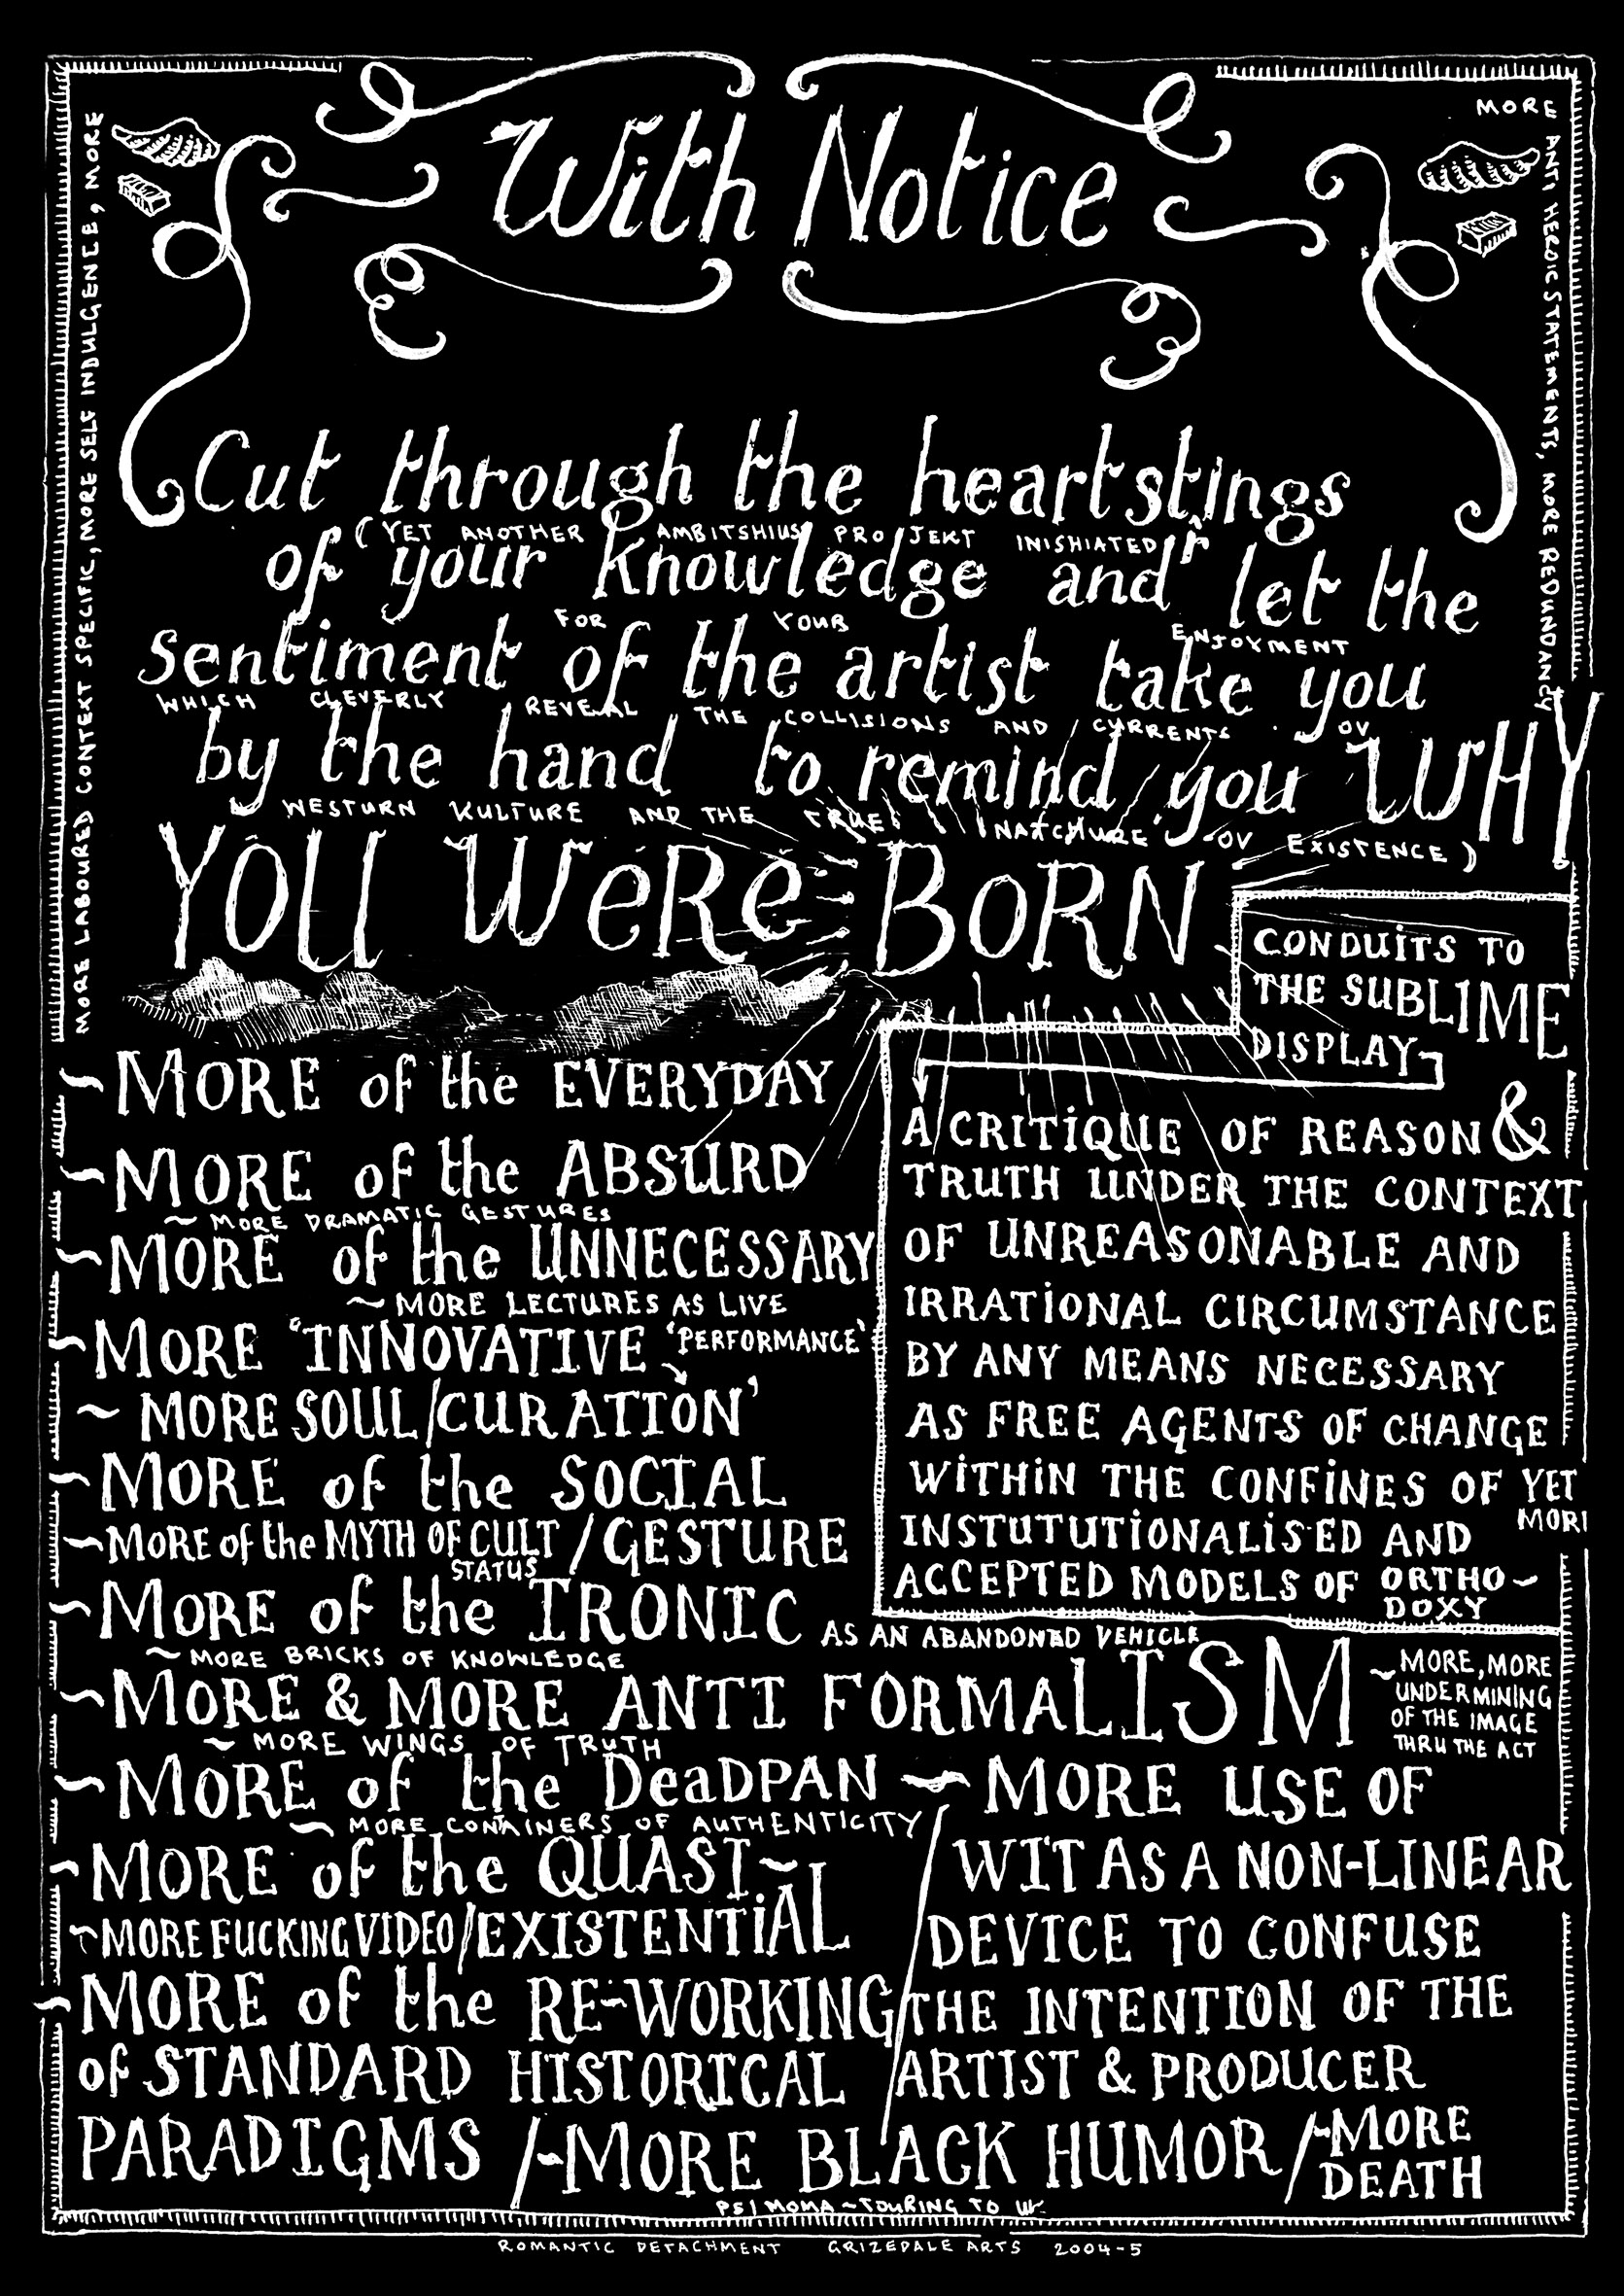 With Notice
MORE LABOURED CONTEXT SPECIFIC, MORE SELF INDULGENCE, MORE
MORE ANTI HEROIC STATEMENTS, MORE REDUNDANCY
Cut through the heartstings
r
(YET ANOTHER AMBITSHIUS PROJEKT INISHIATED
of your knowledge and let the
FOR YOUR ENJOYMENT
sentiment of the artist take you
WHICH CLEVERLY REVEAL THE COLLISIONS AND CURRENTS OV
by the hand to remind you WHY
WESTURN KULTURE AND THE TRUE 'NATCHURE' OV EXISTENCE)
YOU WeRe BORN
CONDUITS TO
THE SUBLIME
DISPLAY
A CRITIQUE OF REASON &
TRUTH UNDER THE CONTEXT
OF UNREASONABLE AND
IRRATIONAL CIRCUMSTANCE
BY ANY MEANS NECESSARY
AS FREE AGENTS OF CHANGE
WITHIN THE CONFINES OF YET
MORE
INSTUTUTIONALISED AND
ACCEPTED MODELS OF ORTHO-
DOXY
~MORE of the EVERYDAY
~MORE of the ABSURD
~MORE DRAMATIC GESTURES
~MORE of the UNNECESSARY
~MORE LECTURES AS LIVE
'PERFORMANCE'
~MORE 'INNOVATIVE
~MORE SOUL/CURATION'
~MORE of the SOCIAL
~MORE of the MYTH OF CULT/GESTURE
STATUS
~MORE of the IRONIC AS AN ABANDONED VEHICLE
~MORE BRICKS OF KNOWLEDGE
~MORE & MORE ANTI FORMALISM
~MORE, MORE
UNDERMINING
OF THE IMAGE
THRU THE ACT
~MORE WINGS OF TRUTH
~MORE of the DeaDPAN
~MORE CONTAINERS OF AUTHENTICITY
~MORE of the QUASI~
~MORE FUCKING VIDEO/EXISTENTIAL
~MORE of the RE-WORKING
of STANDARD HISTORICAL
PARADIGMS
~MORE USE OF
WIT AS A NON-LINEAR
DEVICE TO CONFUSE
THE INTENTION OF THE
ARTIST & PRODUCER
/~MORE BLACK HUMOR/~MORE
DEATH
PS1 MOMA ~ TOURING TO
ROMANTIC DETACHMENT GRIZEDALE ARTS 2004-5